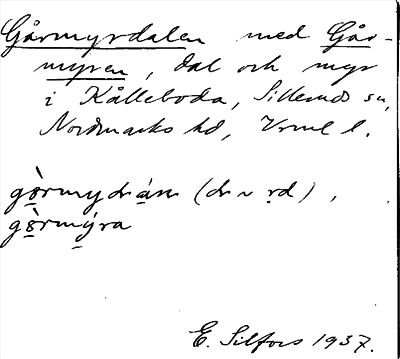 Gårmyrdalen med Går-
myren, dal och myr
i Kålleboda, Silleruds sn,
Nordmarks hd, Vrml l.
gòrmydrán (dr ~ rd),
gòrmýra
E. Silfors 1937.